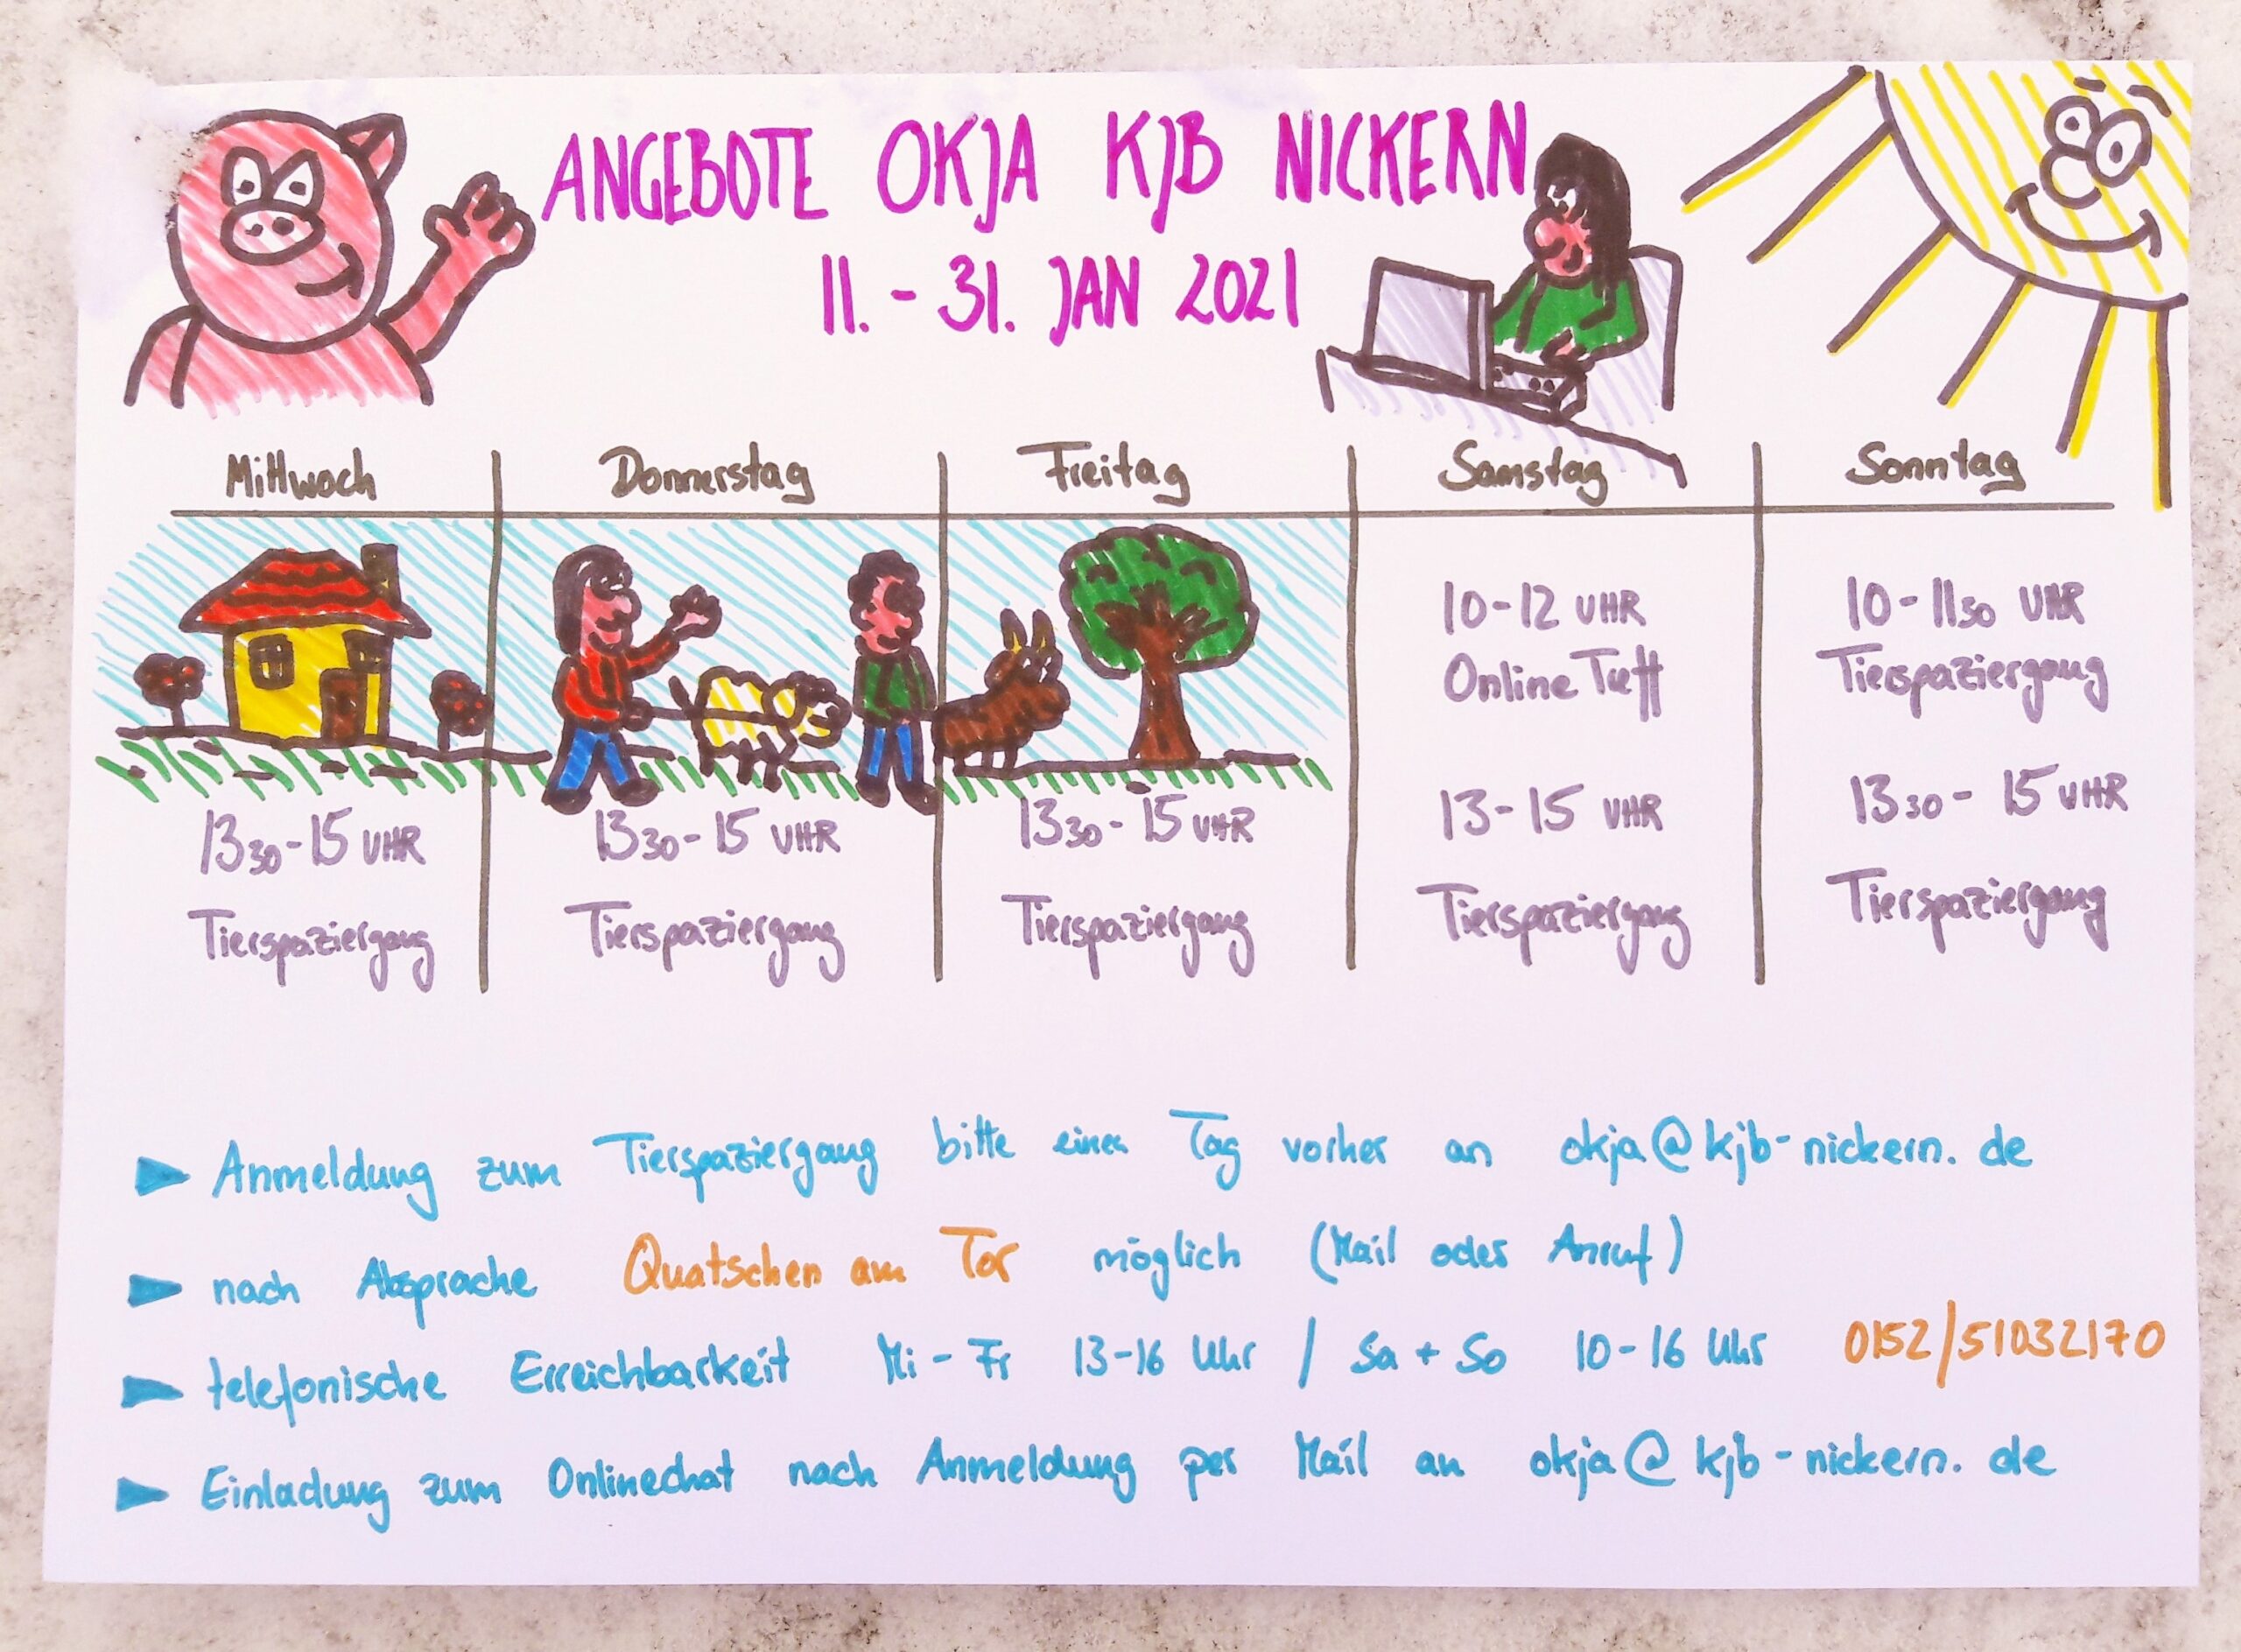 ANGEBOTE OKJA KJB NICKERN
11. - 31. JAN 2021
Mittwoch
Donnerstag
Freitag
Samstag
Sonntag
13 30 - 15 UHR
Tierspaziergang
13 30 - 15 UHR
Tierspaziergang
13 30 - 15 UHR
Tierspaziergang
10 - 12 UHR
Online Treff
13 - 15 UHR
Tierspaziergang
10 - 11 30 UHR
Tierspaziergang
13 30 - 15 UHR
Tierspaziergang
Anmeldung zum Tierspaziergang bitte einen Tag vorher an okja@kjb-nickern.de
nach Absprache Quatschen am Tor möglich (Mail oder Anruf)
telefonische Erreichbarkeit Mi - Fr 13-16 Uhr / Sa + So 10-16 Uhr 0152/51032170
Einladung zum Onlinechat nach Anmeldung per Mail an okja@kjb-nickern.de